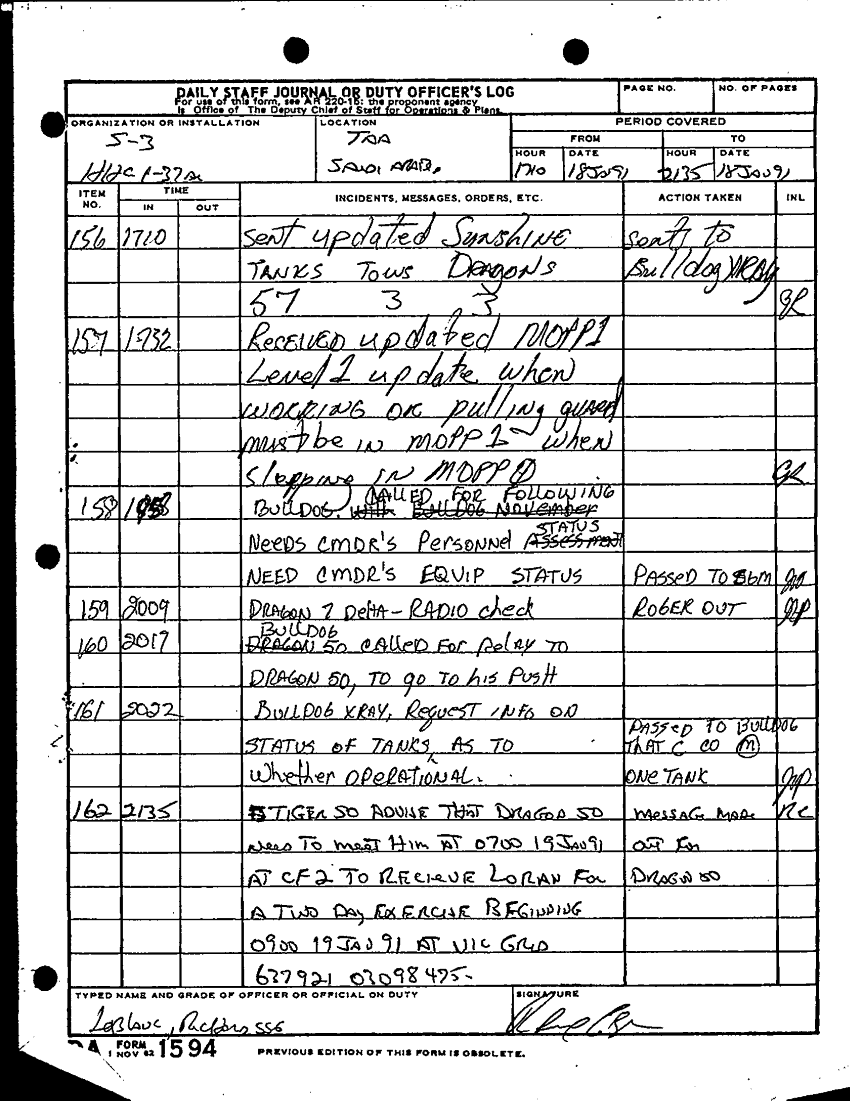 DAILY STAFF JOURNAL OR DUTY OFFICER'S LOG
For use of this form, see AR 220-15; the proponent agency
is Office of The Deputy Chief of Staff for Operations & Plans.
PAGE NO.
NO. OF PAGES
ORGANIZATION OR INSTALLATION
S-3
HHC 1-37
LOCATION
TAA
SAUDI ARAB.
PERIOD COVERED
FROM
TO
HOUR DATE HOUR DATE
1710 18JAN91 2135 18JAN91
ITEM NO.
TIME
IN OUT
INCIDENTS, MESSAGES, ORDERS, ETC.
ACTION TAKEN
INL
156 1710 Sent updated SUNSHINE sent to
TANKS TOWS DRAGONS Bulldog XRAY
57 3 3 GR
157 1932 RECEIVED updated MOPP1
Level 1 update when
WORKING OR pulling guard
must be IN MOPP 1 when
slepping IN MOPP 0 GR
CALLED FOR FOLLOWING
158 BULLDOG. with BULLDOG NOVEMBER
STATUS
NEEDS CMDR'S Personnel Assessment
NEED CMDR'S EQUIP STATUS PASSED TO
159 2009 DRAGON 7 Delta - RADIO check ROGER OUT
BULLDOG
160 2017 DRAGON 50 CALLED FOR Relay TO
DRAGON 50, TO go TO his PUSH
161 2022 BULLDOG XRAY, Request INFO ON
PASSED TO BULLDOG
STATUS OF TANKS, AS TO THAT C CO M
Whether OPERATIONAL. ONE TANK
162 2135 TIGER 50 ADVISE THAT DRAGON 50 MESSAGE MADE RC
NEED TO MEET HIM AT 0700 19JAN91 OUT FOR
AT CF2 TO RECIEVE LORAN FOR DRAGON 50
A TWO DAY EXERCISE BEGINNING
0900 19 JAN 91 AT VIC GRID
637921 03098475.
TYPED NAME AND GRADE OF OFFICER OR OFFICIAL ON DUTY
LeBlanc, SSG
SIGNATURE
DA FORM 1 NOV 62 1594
PREVIOUS EDITION OF THIS FORM IS OBSOLETE.